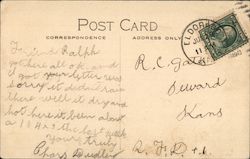 POST CARD
CORRESPONDENCE
ADDRESS ONLY
ELDORA
Friend Ralph
got here all ok and
I got your letter was
sorry it didn't rain
there well it dry and
hot here it been about
a 110 the last week
Yours truly
Chas Dudley
R. C. 
Seward
Kans
R. F. D.